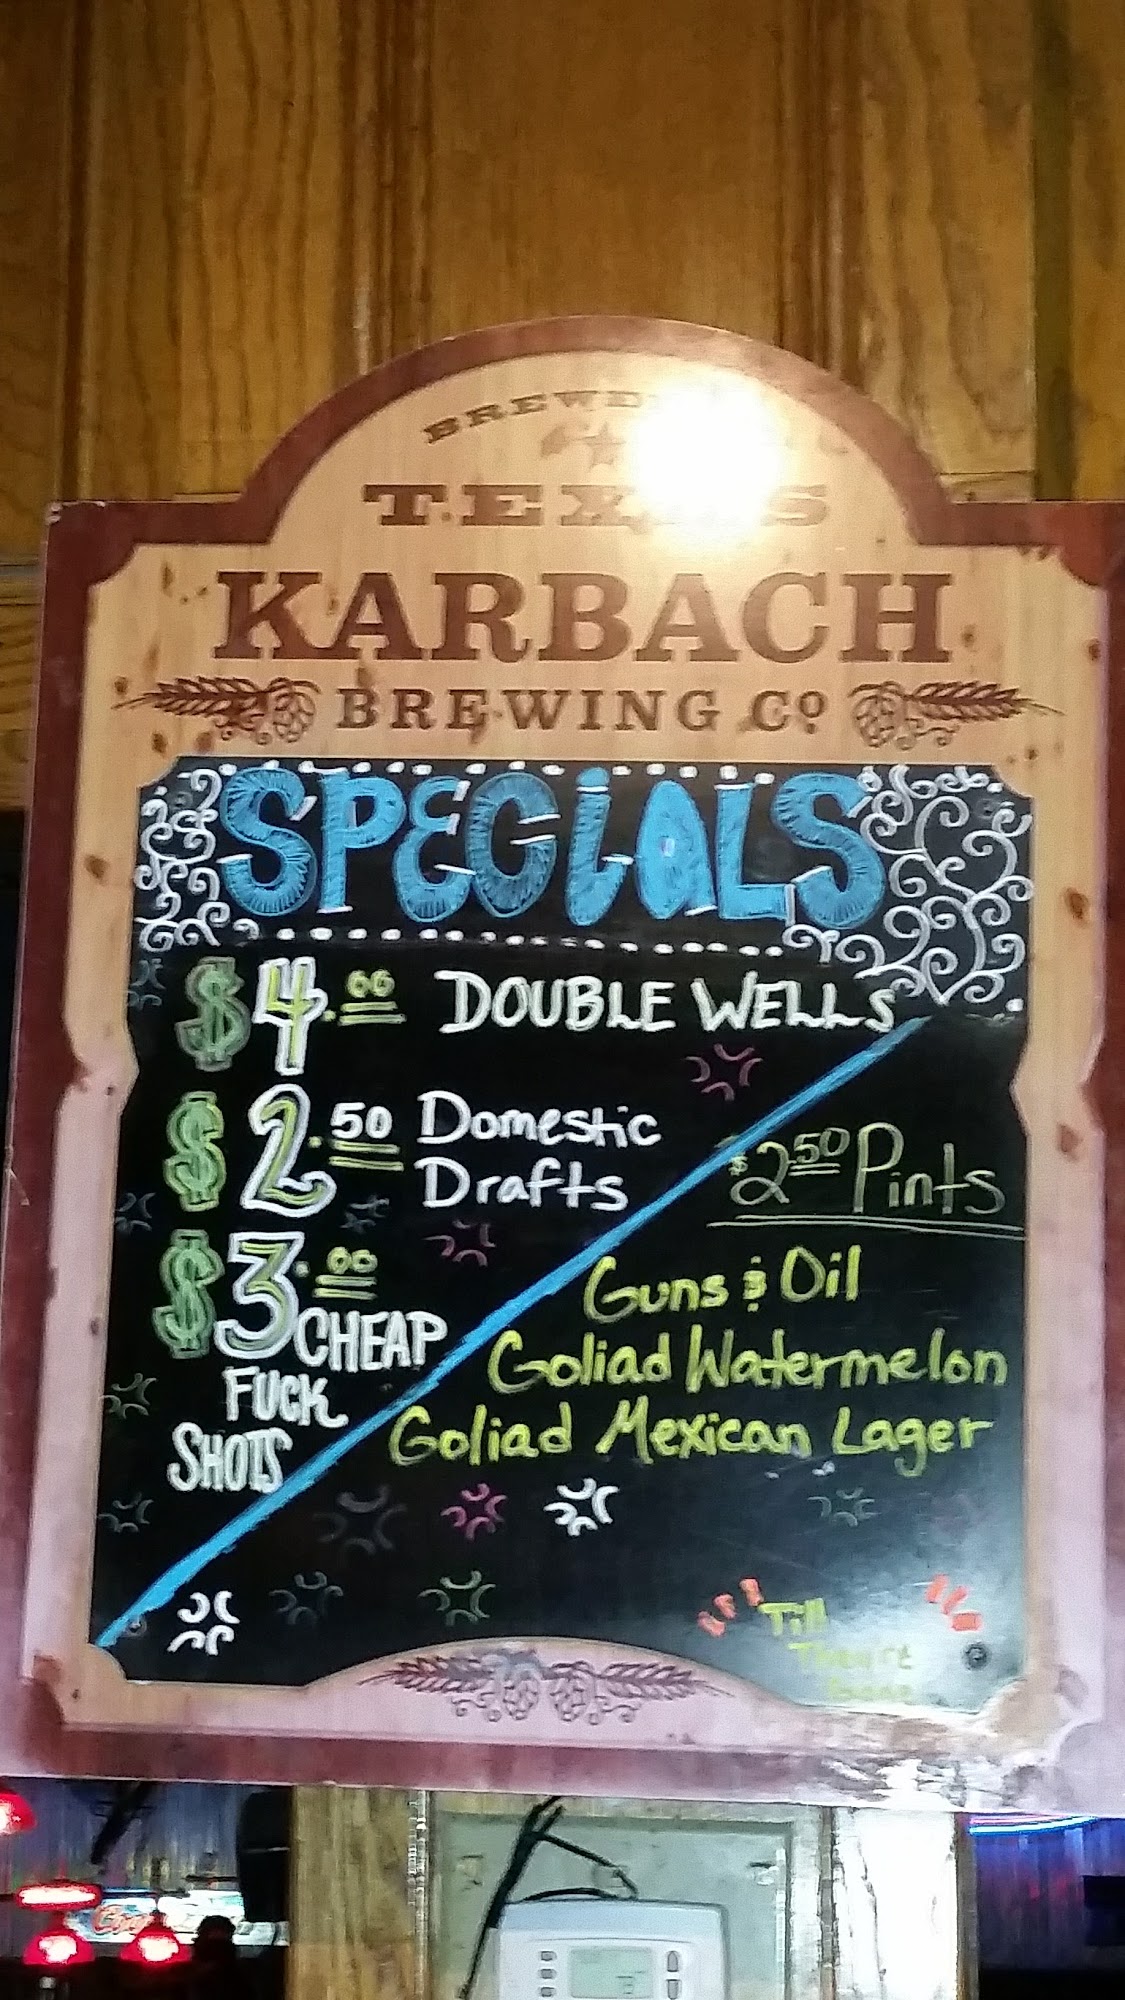 TEXAS
KARBACH
BREWING Cº
SPECiaLS
$4.00 DOUBLE WELLS
$2.50 Domestic
Drafts
$3.00
CHEAP
FUCK
SHOTS
$2.50 Pints
Guns & Oil
Goliad Watermelon
Goliad Mexican Lager
Till
They're